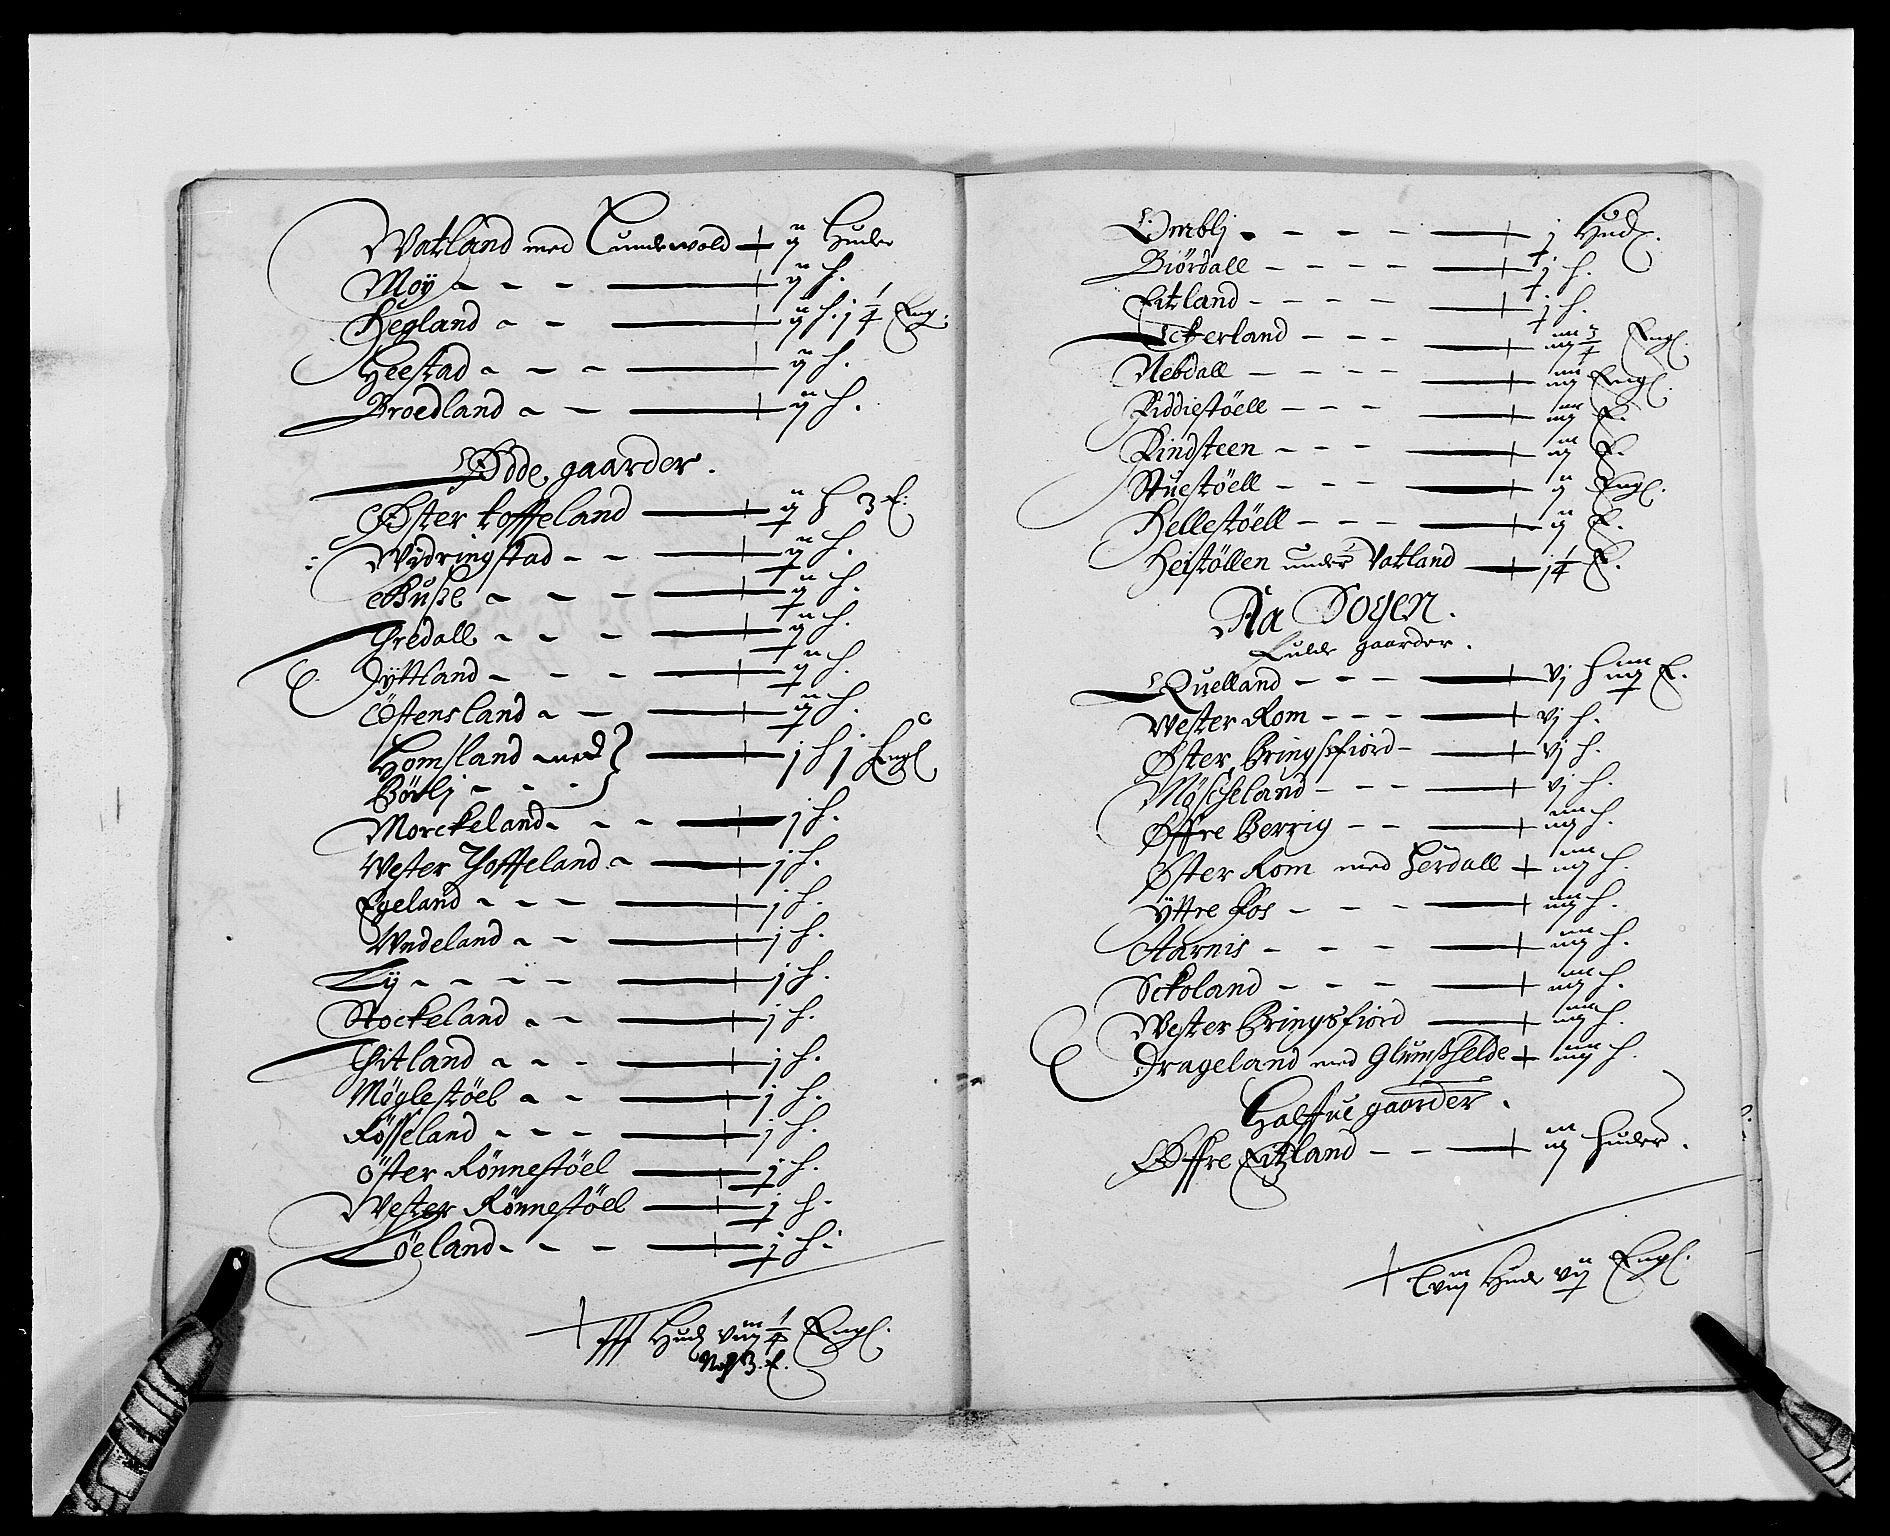 Watland med Lundewold — ij Huder
Møy — ij h.
Hegland — ij h. 1 1/4 Eng:
Heestad — ij h.
Broedland — ij h.
Øde gaarder.
Øster toffeland — ij h 3 E:
Wydringstad — ij h.
Buse — ij h.
Gredall — ij h.
Jyttland — ij h.
Østensland — ij h.
Homsland med
j h j Engl
Morckeland — j h.
Wester Toffeland — j h.
Egeland — j h.
Wndeland — j h.
Ly — j h.
Stockeland — j h.
Gitland — j h.
Møglestøel — j h.
Røsseland — j h.
Öster Rönnestöel — j h.
Wester Rønnestöel — j h.
Löeland — j h.
Hud viij 1/4 Engl.
3. E.
Omblj — j Hud.
Biördall — j h.
Eitland — j h.
Eckerland — iiij 3/4 Engl.
Nebdall — iiij Engl.
Riddiestöell — iiij E.
Rindsteen — iij E.
Stuestöell — ij Engl.
Hellestöell — ij E.
Heistöllen under Vatland — 1 1/4 E.
Aa Sogen.
Fulde gaarder.
Quelland — vj h iiij E.
Wester Rom — vj h.
Øster Bringsfiord — vj h.
Møscheland — vj h.
Øffre Berrig — iiij h.
Øster Rom med Herdall — iiij h.
Yttre Fos — iiij h.
Aarnis — iiij h.
Sckoland — iiij h.
Wester Bringsfiord — iiij h.
Drageland med Glumshelde — iiij h.
Halffue gaarder.
Øffre Eitland — iij Huder.
Lviij Hude vij Engl.